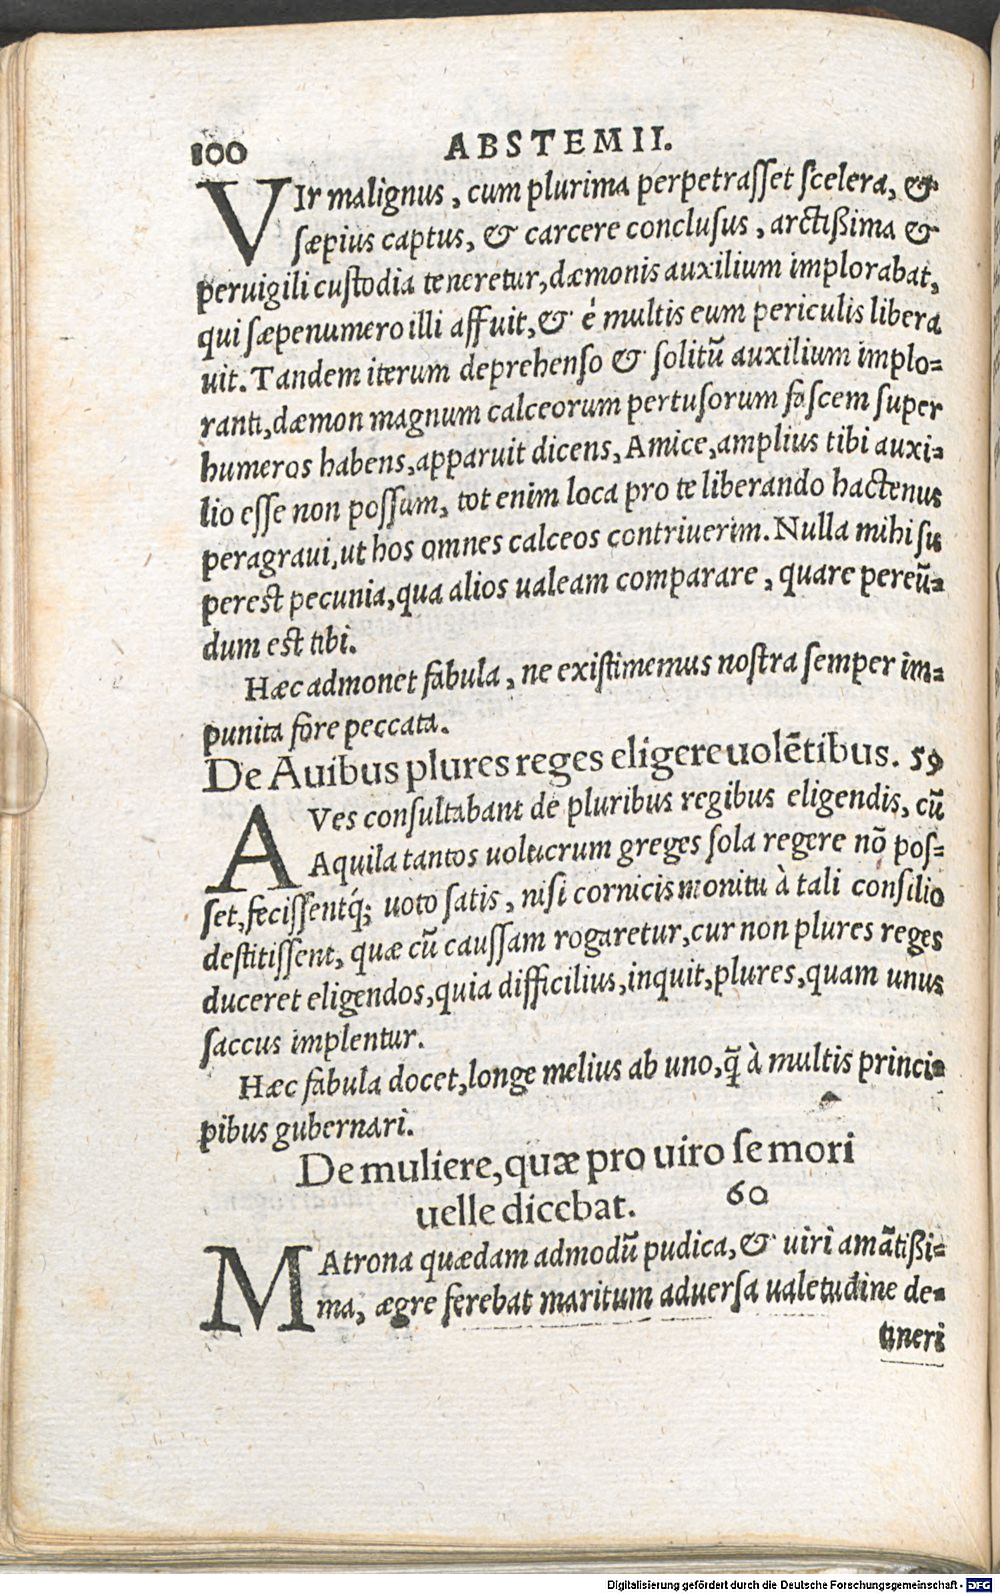 100 ABSTEMII.
VIr malignus, cum plurima perpetrasset scelera, &
sæpius captus, & carcere conclusus, arctißima &
peruigili custodia teneretur, dæmonis auxilium implorabat,
qui sæpenumero illi affuit, & è multis eum periculis libera
uit. Tandem iterum deprehenso & solitũ auxilium implo-
ranti, dæmon magnum calceorum pertusorum fascem super
humeros habens, apparuit dicens, Amice, amplius tibi auxi-
lio esse non possum, tot enim loca pro te liberando hactenus
peragraui, ut hos omnes calceos contriuerim. Nulla mihi su
perest pecunia, qua alios ualeam comparare, quare pereũ-
dum est tibi.
Hæc admonet fabula, ne existimemus nostra semper im-
punita fore peccata.
De Auibus plures reges eligere uolẽtibus. 59
AVes consultabant de pluribus regibus eligendis, cũ
Aquila tantos uolucrum greges sola regere nõ pos-
set, fecissentq́; uoto satis, nisi cornicis monitu à tali consilio
destitissent, quæ cũ caussam rogaretur, cur non plures reges
duceret eligendos, quia difficilius, inquit, plures, quam unus
saccus implentur.
Hæc fabula docet, longe melius ab uno, q̃ à multis princi-
pibus gubernari.
De muliere, quæ pro uiro se mori
uelle dicebat. 60
MAtrona quædam admodũ pudica, & uiri amãtißi-
ma, ægre ferebat maritum aduersa ualetudine de-
tineri
Digitalisierung gefördert durch die Deutsche Forschungsgemeinschaft - DFG